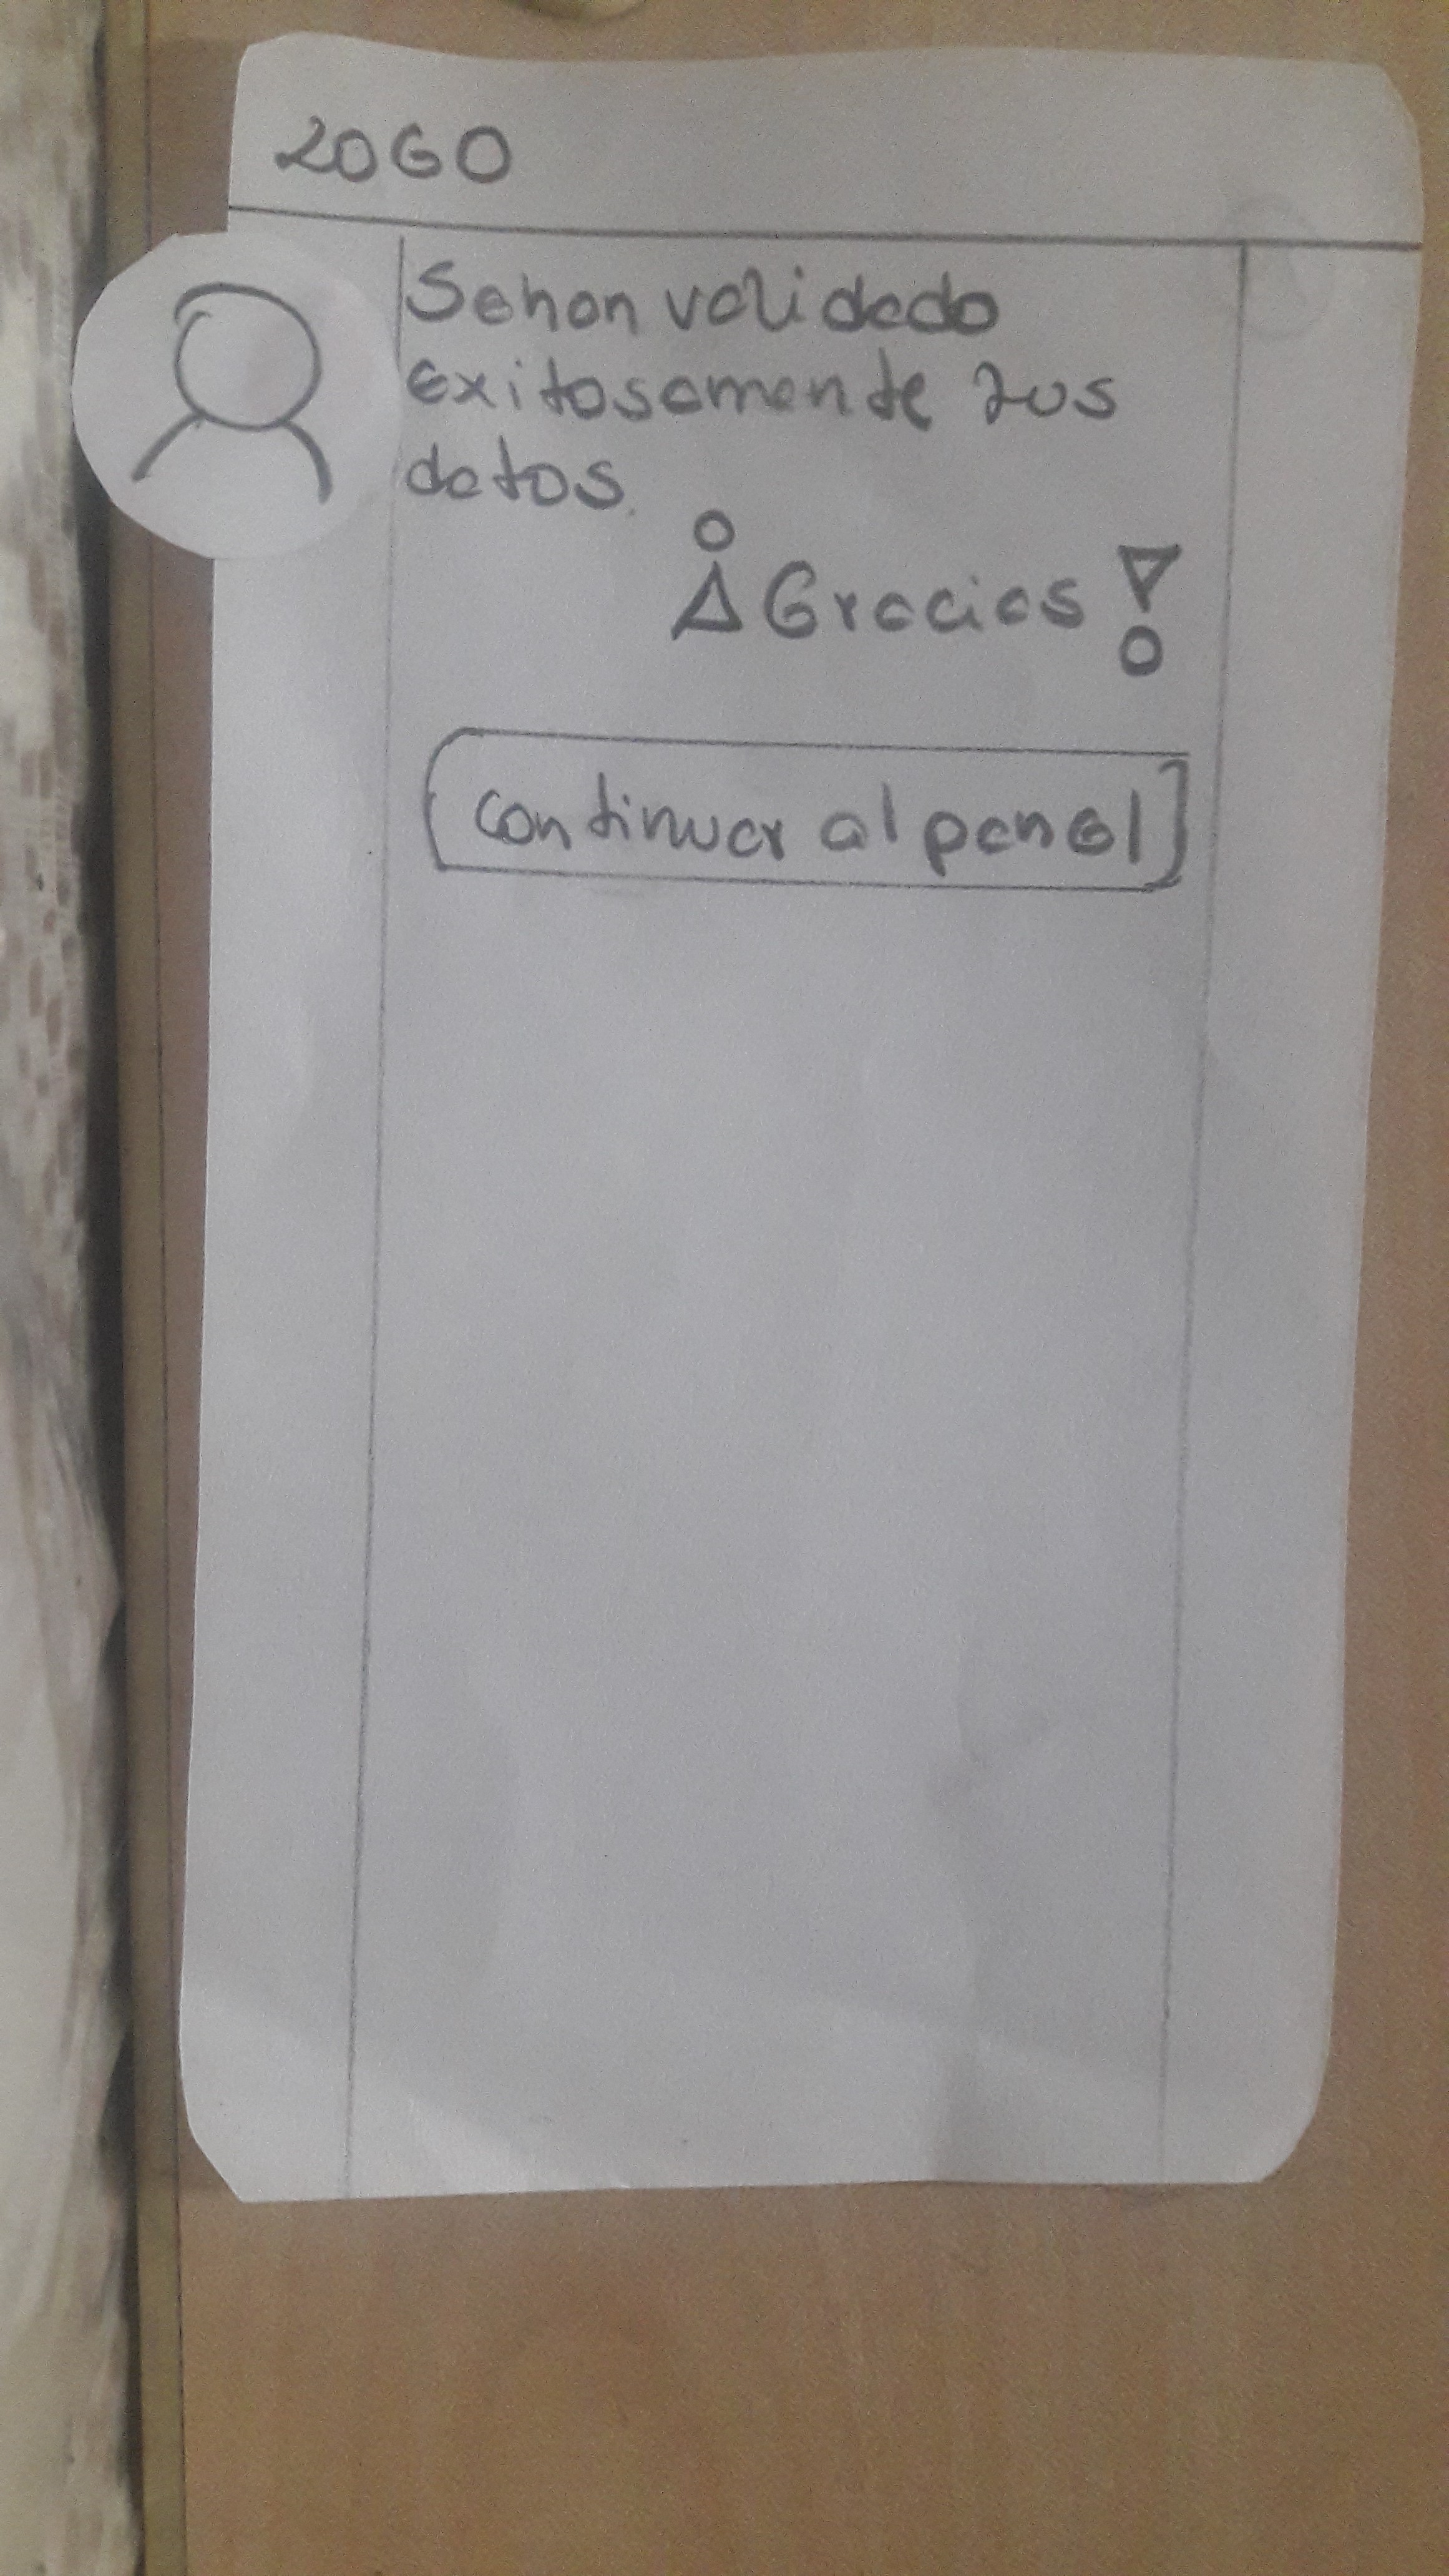 LOGO
Se han validado
exitosamente tus
datos.
¡Gracias!
Continuar al panel